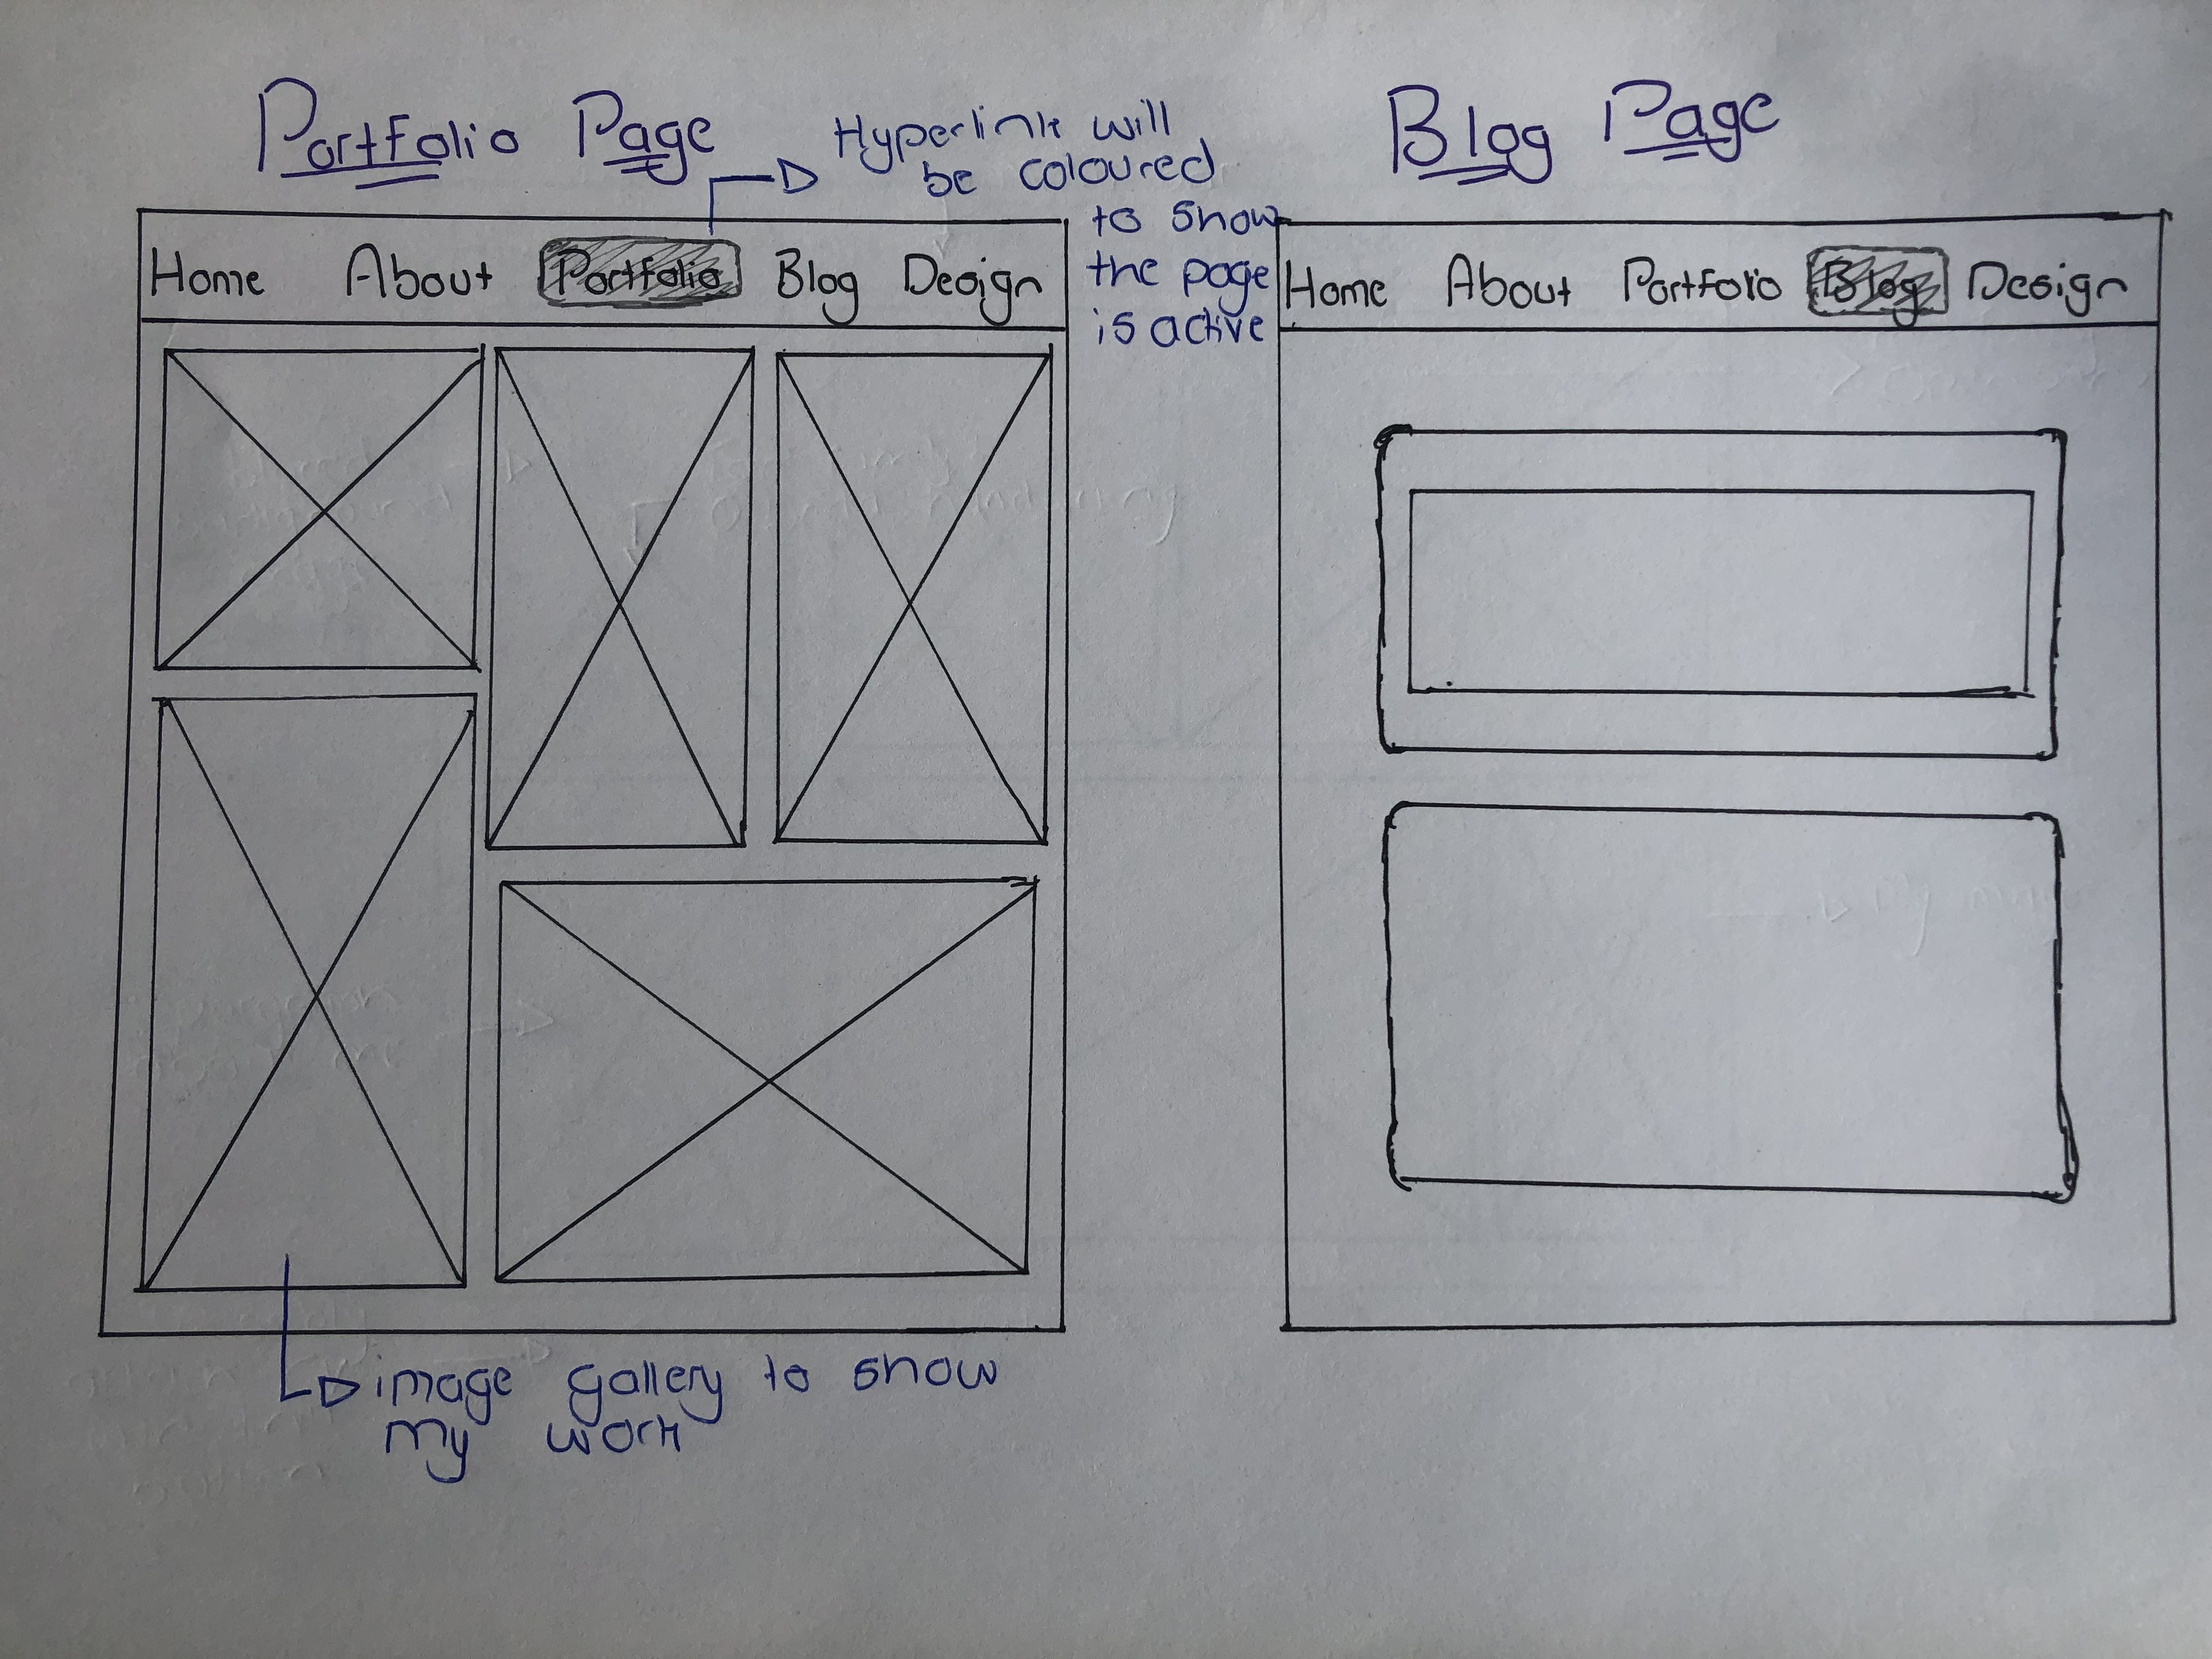 Portfolio Page
Hyperlink will
be coloured
to show
the page
is active
Home About Portfolio Blog Design
image gallery to show
my work
Blog Page
Home About Portfolio Blog Design